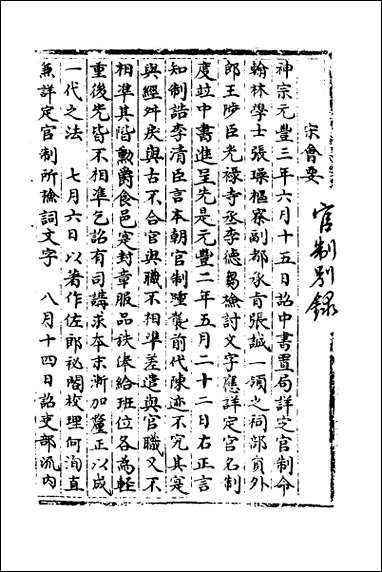 宋會要
官制別錄
神宗元豐三年六月十五日詔中書置局詳定官制命
翰林學士張璪樞密副都承旨張誠一領之祠部員外
郎王陟臣光祿寺丞李德芻檢討文字應詳定官名制
度並中書進呈先是元豐二年五月二十二日右正言
知制誥李清臣言本朝官制踵襲前代陳迹不究其寔
與經舛戾與古不合官與職不相準差遣與官職又不
相準其階勳爵食邑寔封章服品秩俸給班位各為輕
重後先皆不相準乞詔有司講求本末漸加釐正以成
一代之法 七月六日以著作佐郎祕閣校理何洵直
兼詳定官制所檢詞文字 八月十四日詔吏部流內